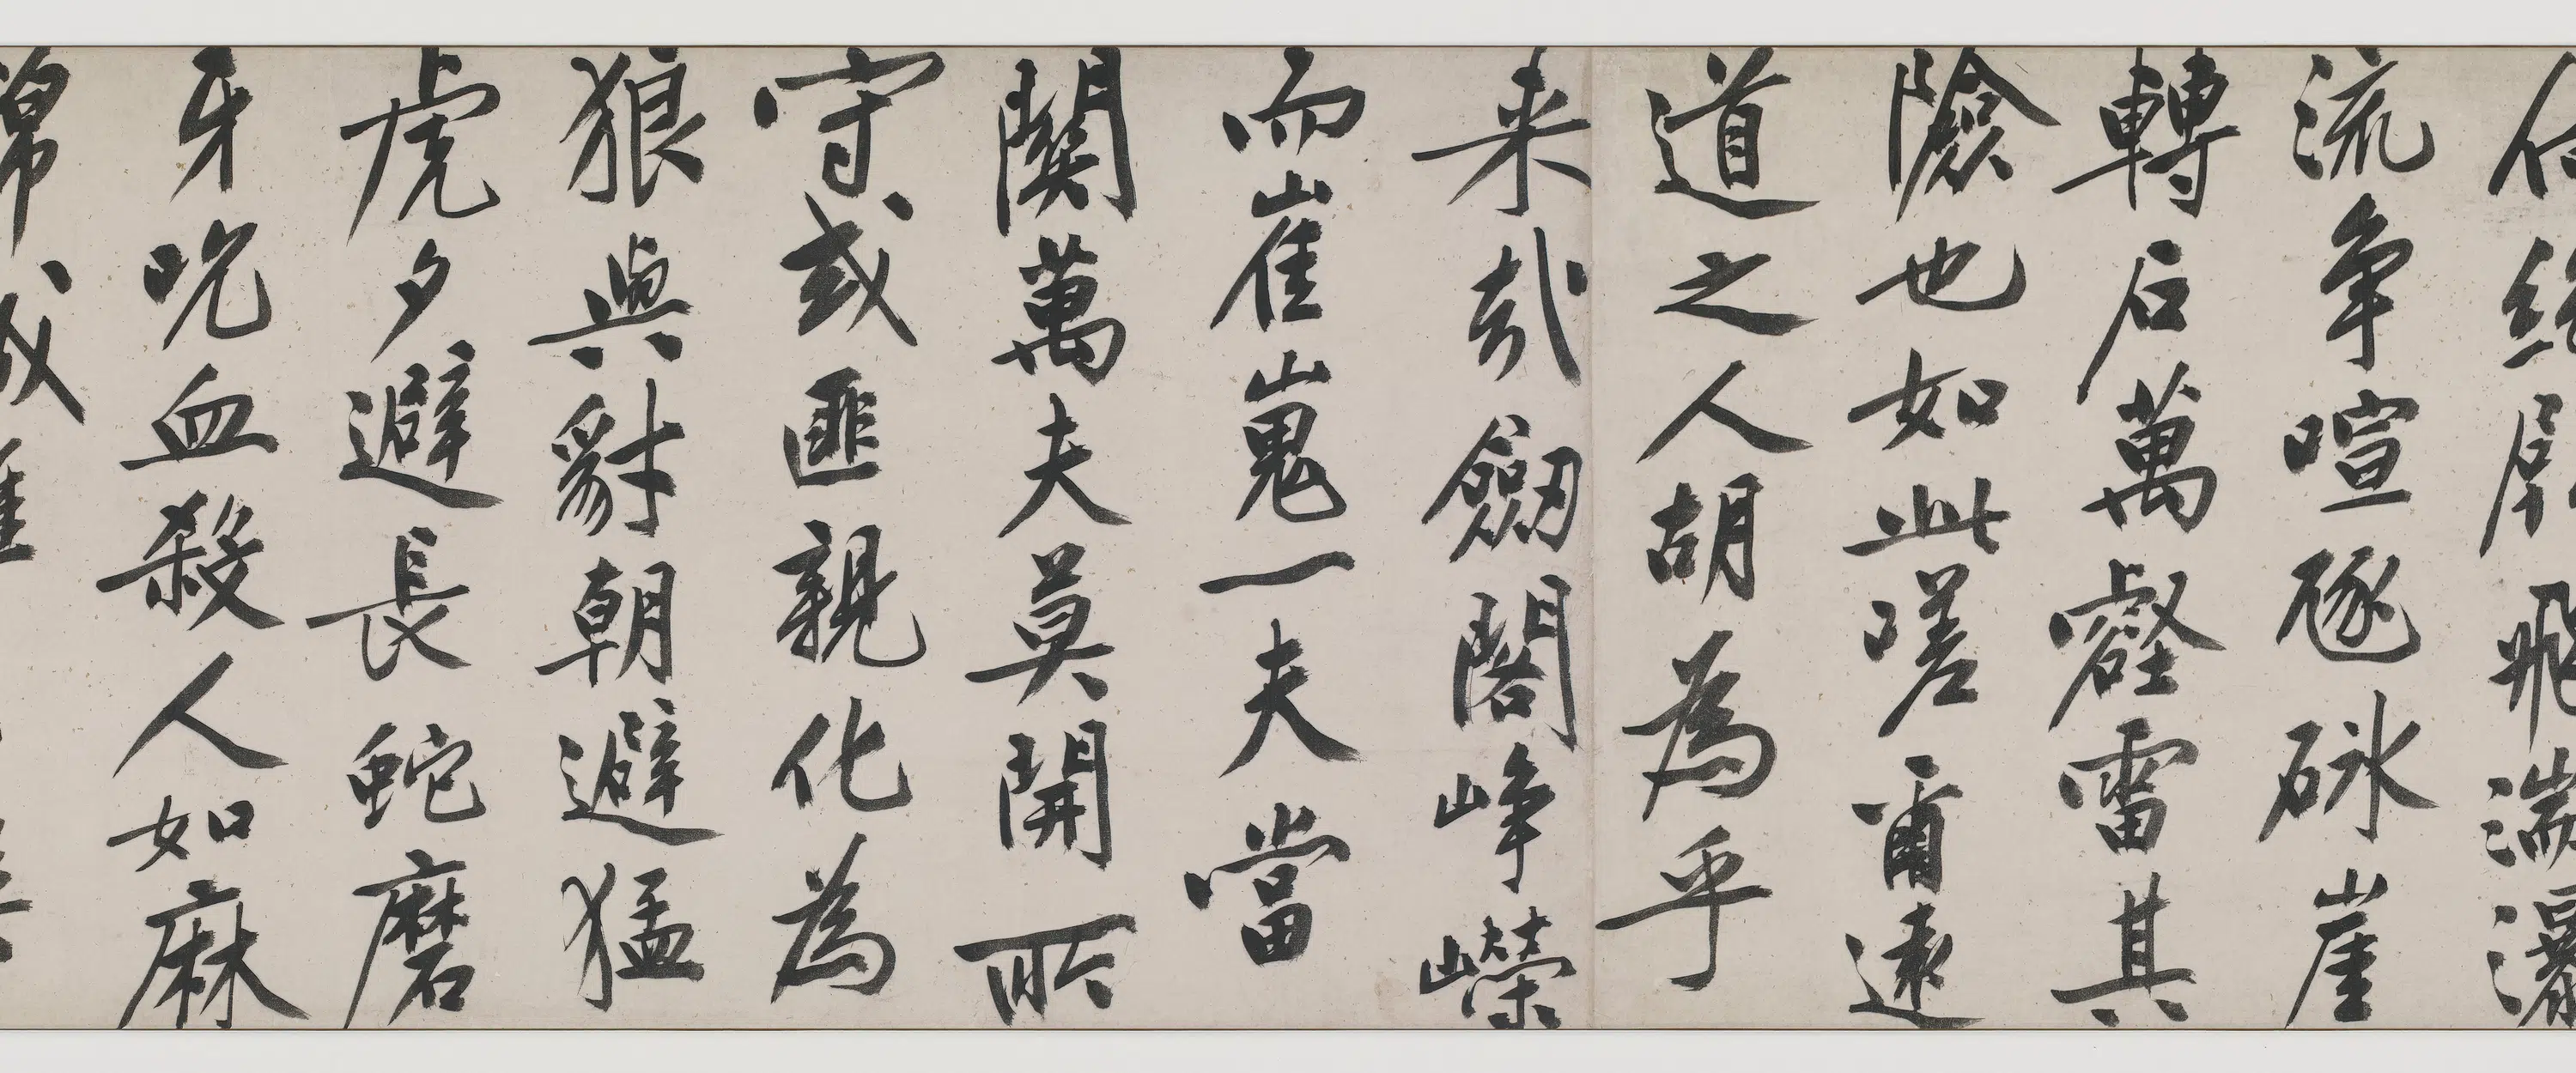 倚絕壁飛湍瀑
流爭喧豗砯崖
轉石萬壑雷其
險也如此嗟爾遠
道之人胡為乎
来哉劔閣崢嶸
而崔嵬一夫當
關萬夫莫開所
守或匪親化為
狼與豺朝避猛
虎夕避長蛇磨
牙吮血殺人如麻
錦城雖